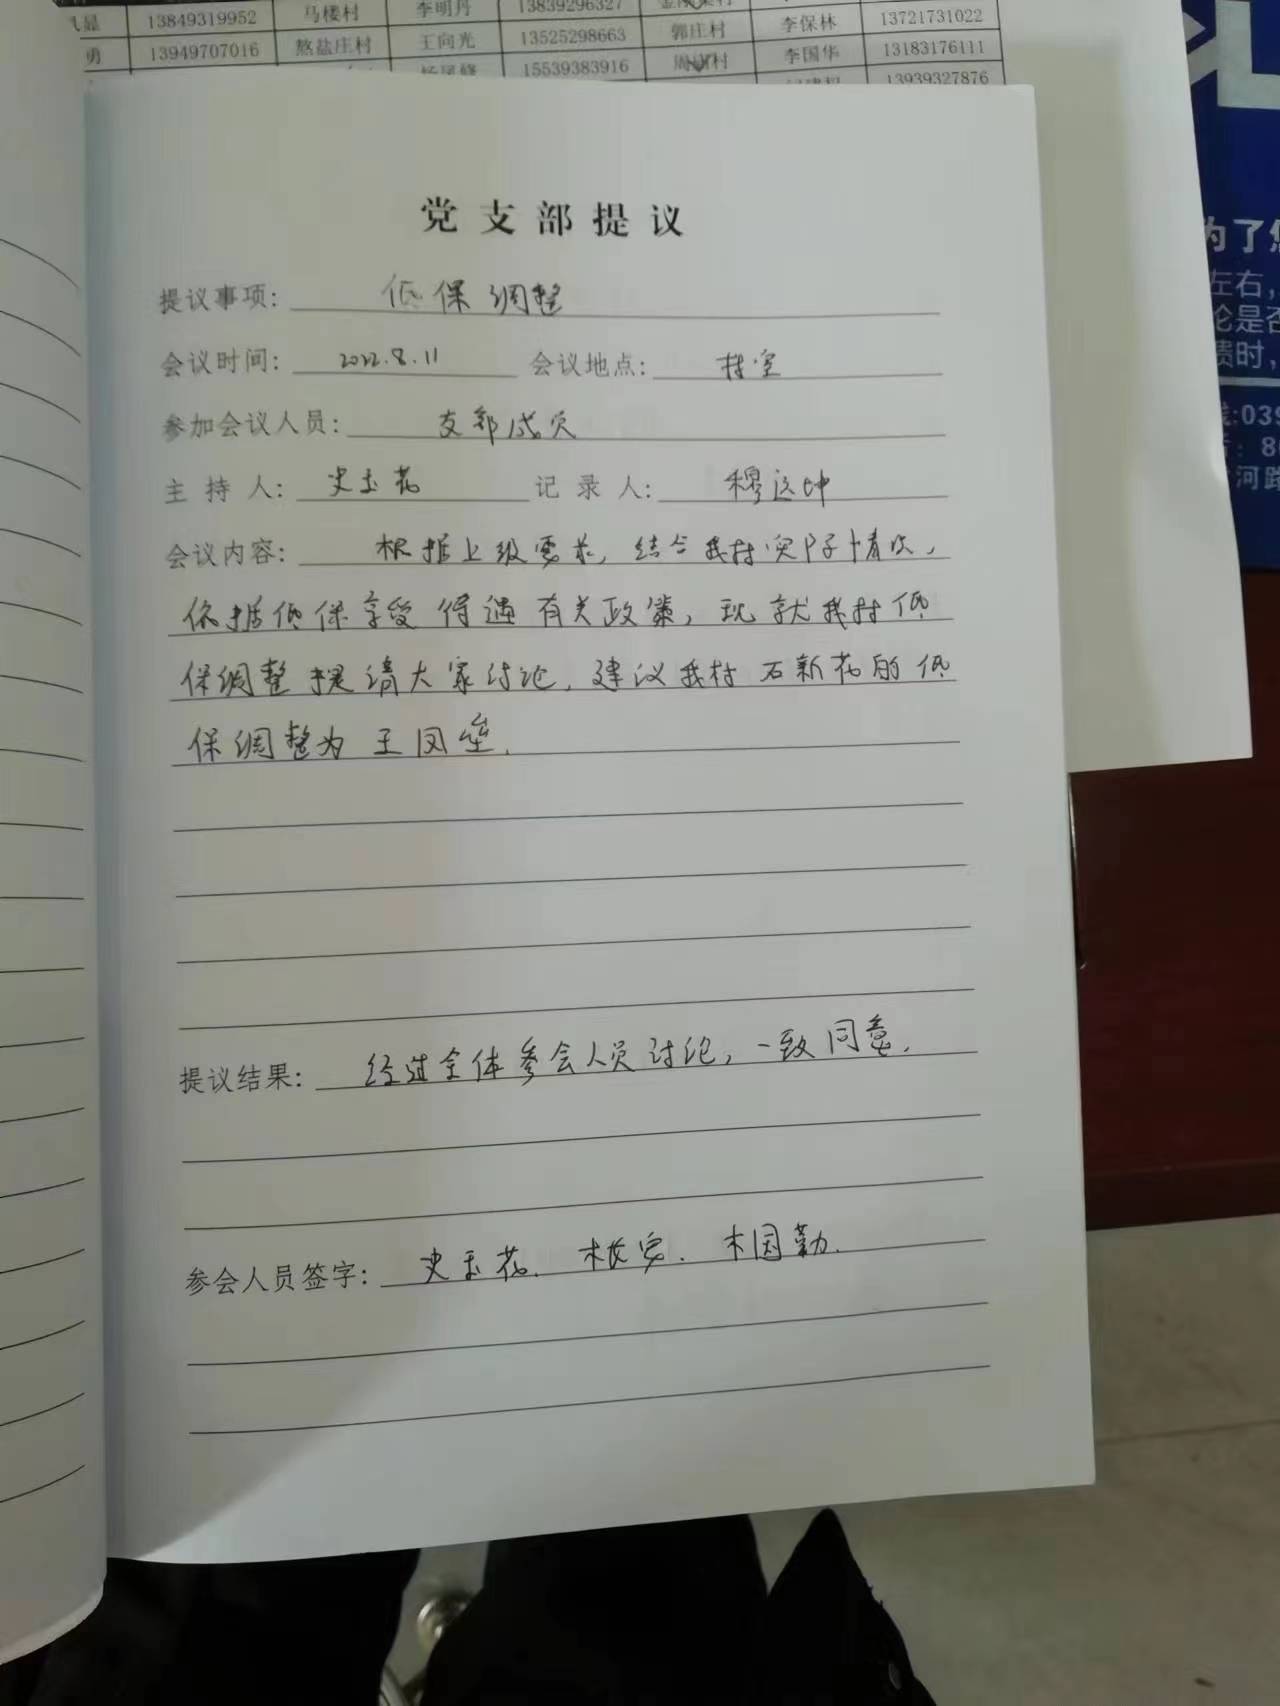 13849319952 马楼村 李明丹 13839296327
勇 13949707016 熬盐庄村 王向光 13525298663 郭庄村 李保林 13721731022
15539383916 周村 李国华 13183176111
13939327876
党支部提议
提议事项: 低保调整
会议时间: 2022.8.11 会议地点: 村室
参加会议人员: 支部成员
主持人: 史玉花 记录人: 穆运坤
会议内容: 根据上级要求,结合我村实际情况,
依据低保享受待遇有关政策,现就我村低
保调整提请大家讨论,建议我村石新花的低
保调整为王凤
提议结果: 经过全体参会人员讨论,一致同意.
参会人员签字: 史玉花.
为了您
左右,
论是否
时,
:039
河路